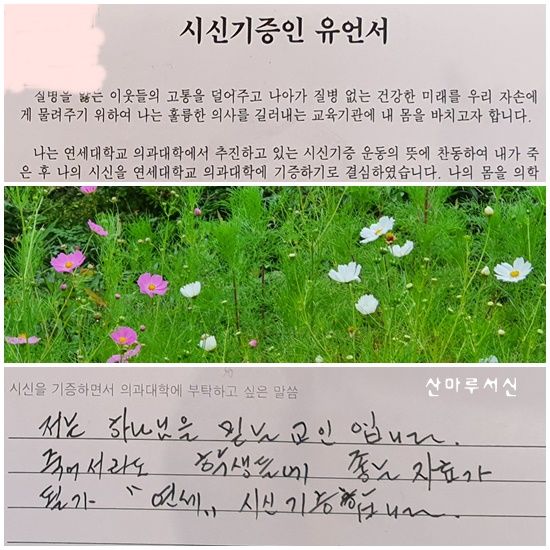 시신기증인 유언서
질병을 앓는 이웃들의 고통을 덜어주고 나아가 질병 없는 건강한 미래를 우리 자손에
게 물려주기 위하여 나는 훌륭한 의사를 길러내는 교육기관에 내 몸을 바치고자 합니다.
나는 연세대학교 의과대학에서 추진하고 있는 시신기증 운동의 뜻에 찬동하여 내가 죽
은 후 나의 시신을 연세대학교 의과대학에 기증하기로 결심하였습니다. 나의 몸을 의학
산마루서신
시신을 기증하면서 의과대학에 부탁하고 싶은 말씀
저는 하나님을 믿는 교인 입니다.
죽어서라도 학생들에게 좋은 자료가
될가 "연세" 시신기증 합니다.